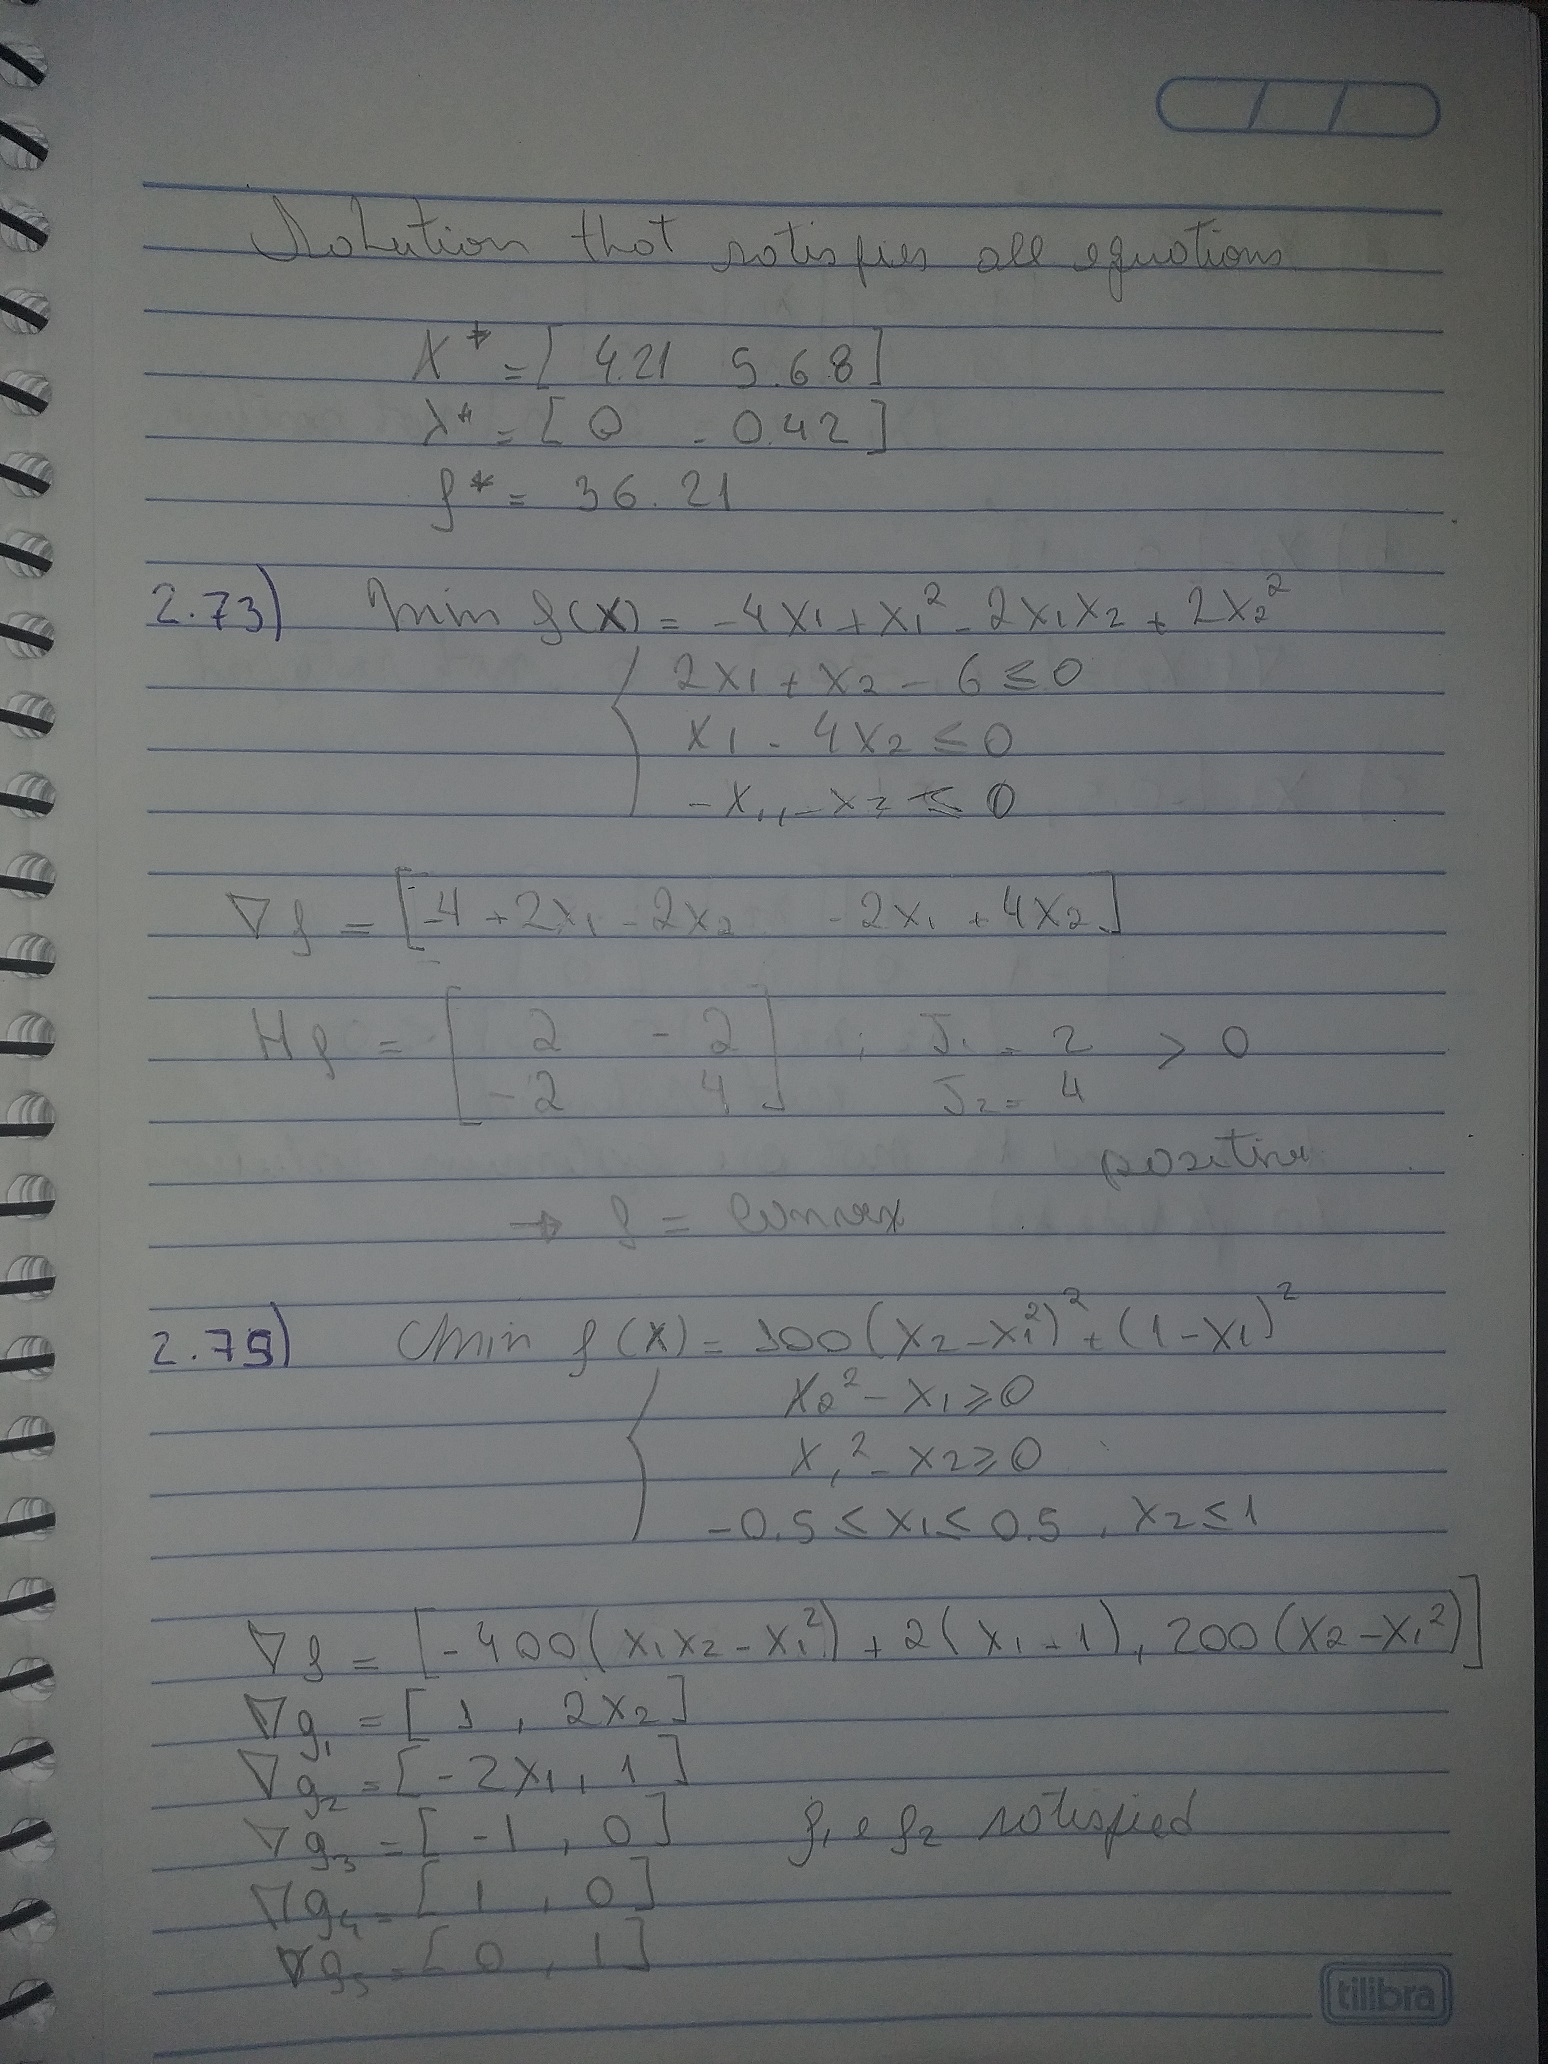 Solution that satisfies all equations
X* = [ 4.21 5.68 ]
λ* = [ 0 - 0.42 ]
f* = 36.21
2.73) Min f(X) = -4x₁ + x₁² - 2x₁x₂ + 2x₂²
2x₁ + x₂ - 6 ≤ 0
x₁ - 4x₂ ≤ 0
-x₁, -x₂ ≤ 0
∇f = [-4 + 2x₁ - 2x₂ -2x₁ + 4x₂]
Hf = [ 2 -2 ; J₁ = 2 > 0
-2 4 ] J₂ = 4
positive
→ f = Convex
2.79) Min f(X) = 100(x₂-x₁²)² + (1-x₁)²
x₂² - x₁ ≥ 0
x₁² - x₂ ≥ 0
-0.5 ≤ x₁ ≤ 0.5, x₂ ≤ 1
∇f = [-400(x₁x₂ - x₁²) + 2(x₁ - 1), 200(x₂-x₁²)]
∇g₁ = [ 1, 2x₂]
∇g₂ = [-2x₁, 1]
∇g₃ = [-1, 0] f₁ e f₂ satisfied
∇g₄ = [1, 0]
∇g₅ = [0, 1]
tilibra